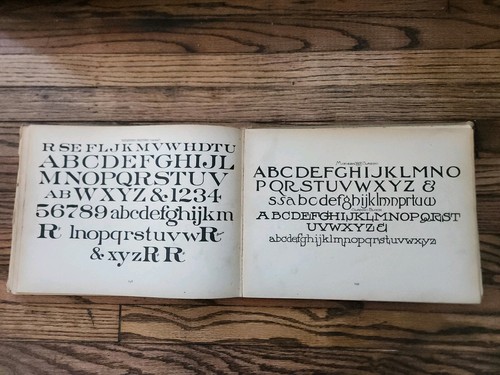 R S E F L J K M V W H D T U
ABCDEFGHIJL
MNOPQRSTUV
AB WXYZ & 1234
56789 abcdefghijkm
R lnopqrstuvw R
& xyz R R
ABCDEFGHIJKLMNO
PQRSTUVWXYZ &
abcdefghijklmnprtuw
ABCDEFGHIJKLMNOPQRST
UVWXYZ &
abcdefghijklmnopqrstuvwxyz